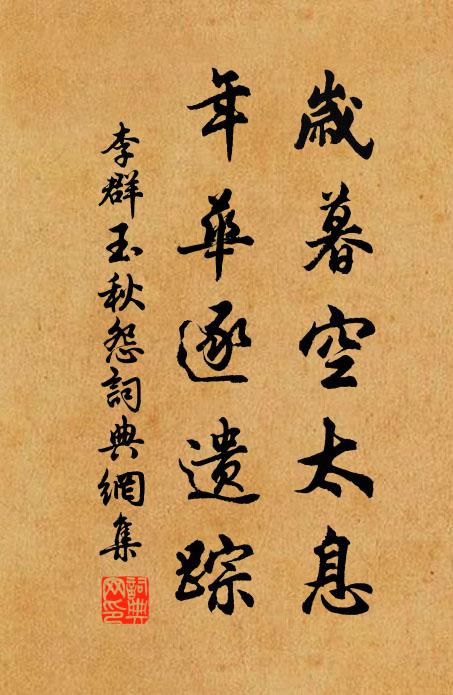 歲暮空太息
年華逐遺踪
李群玉秋怨詞典網集
詞典網印